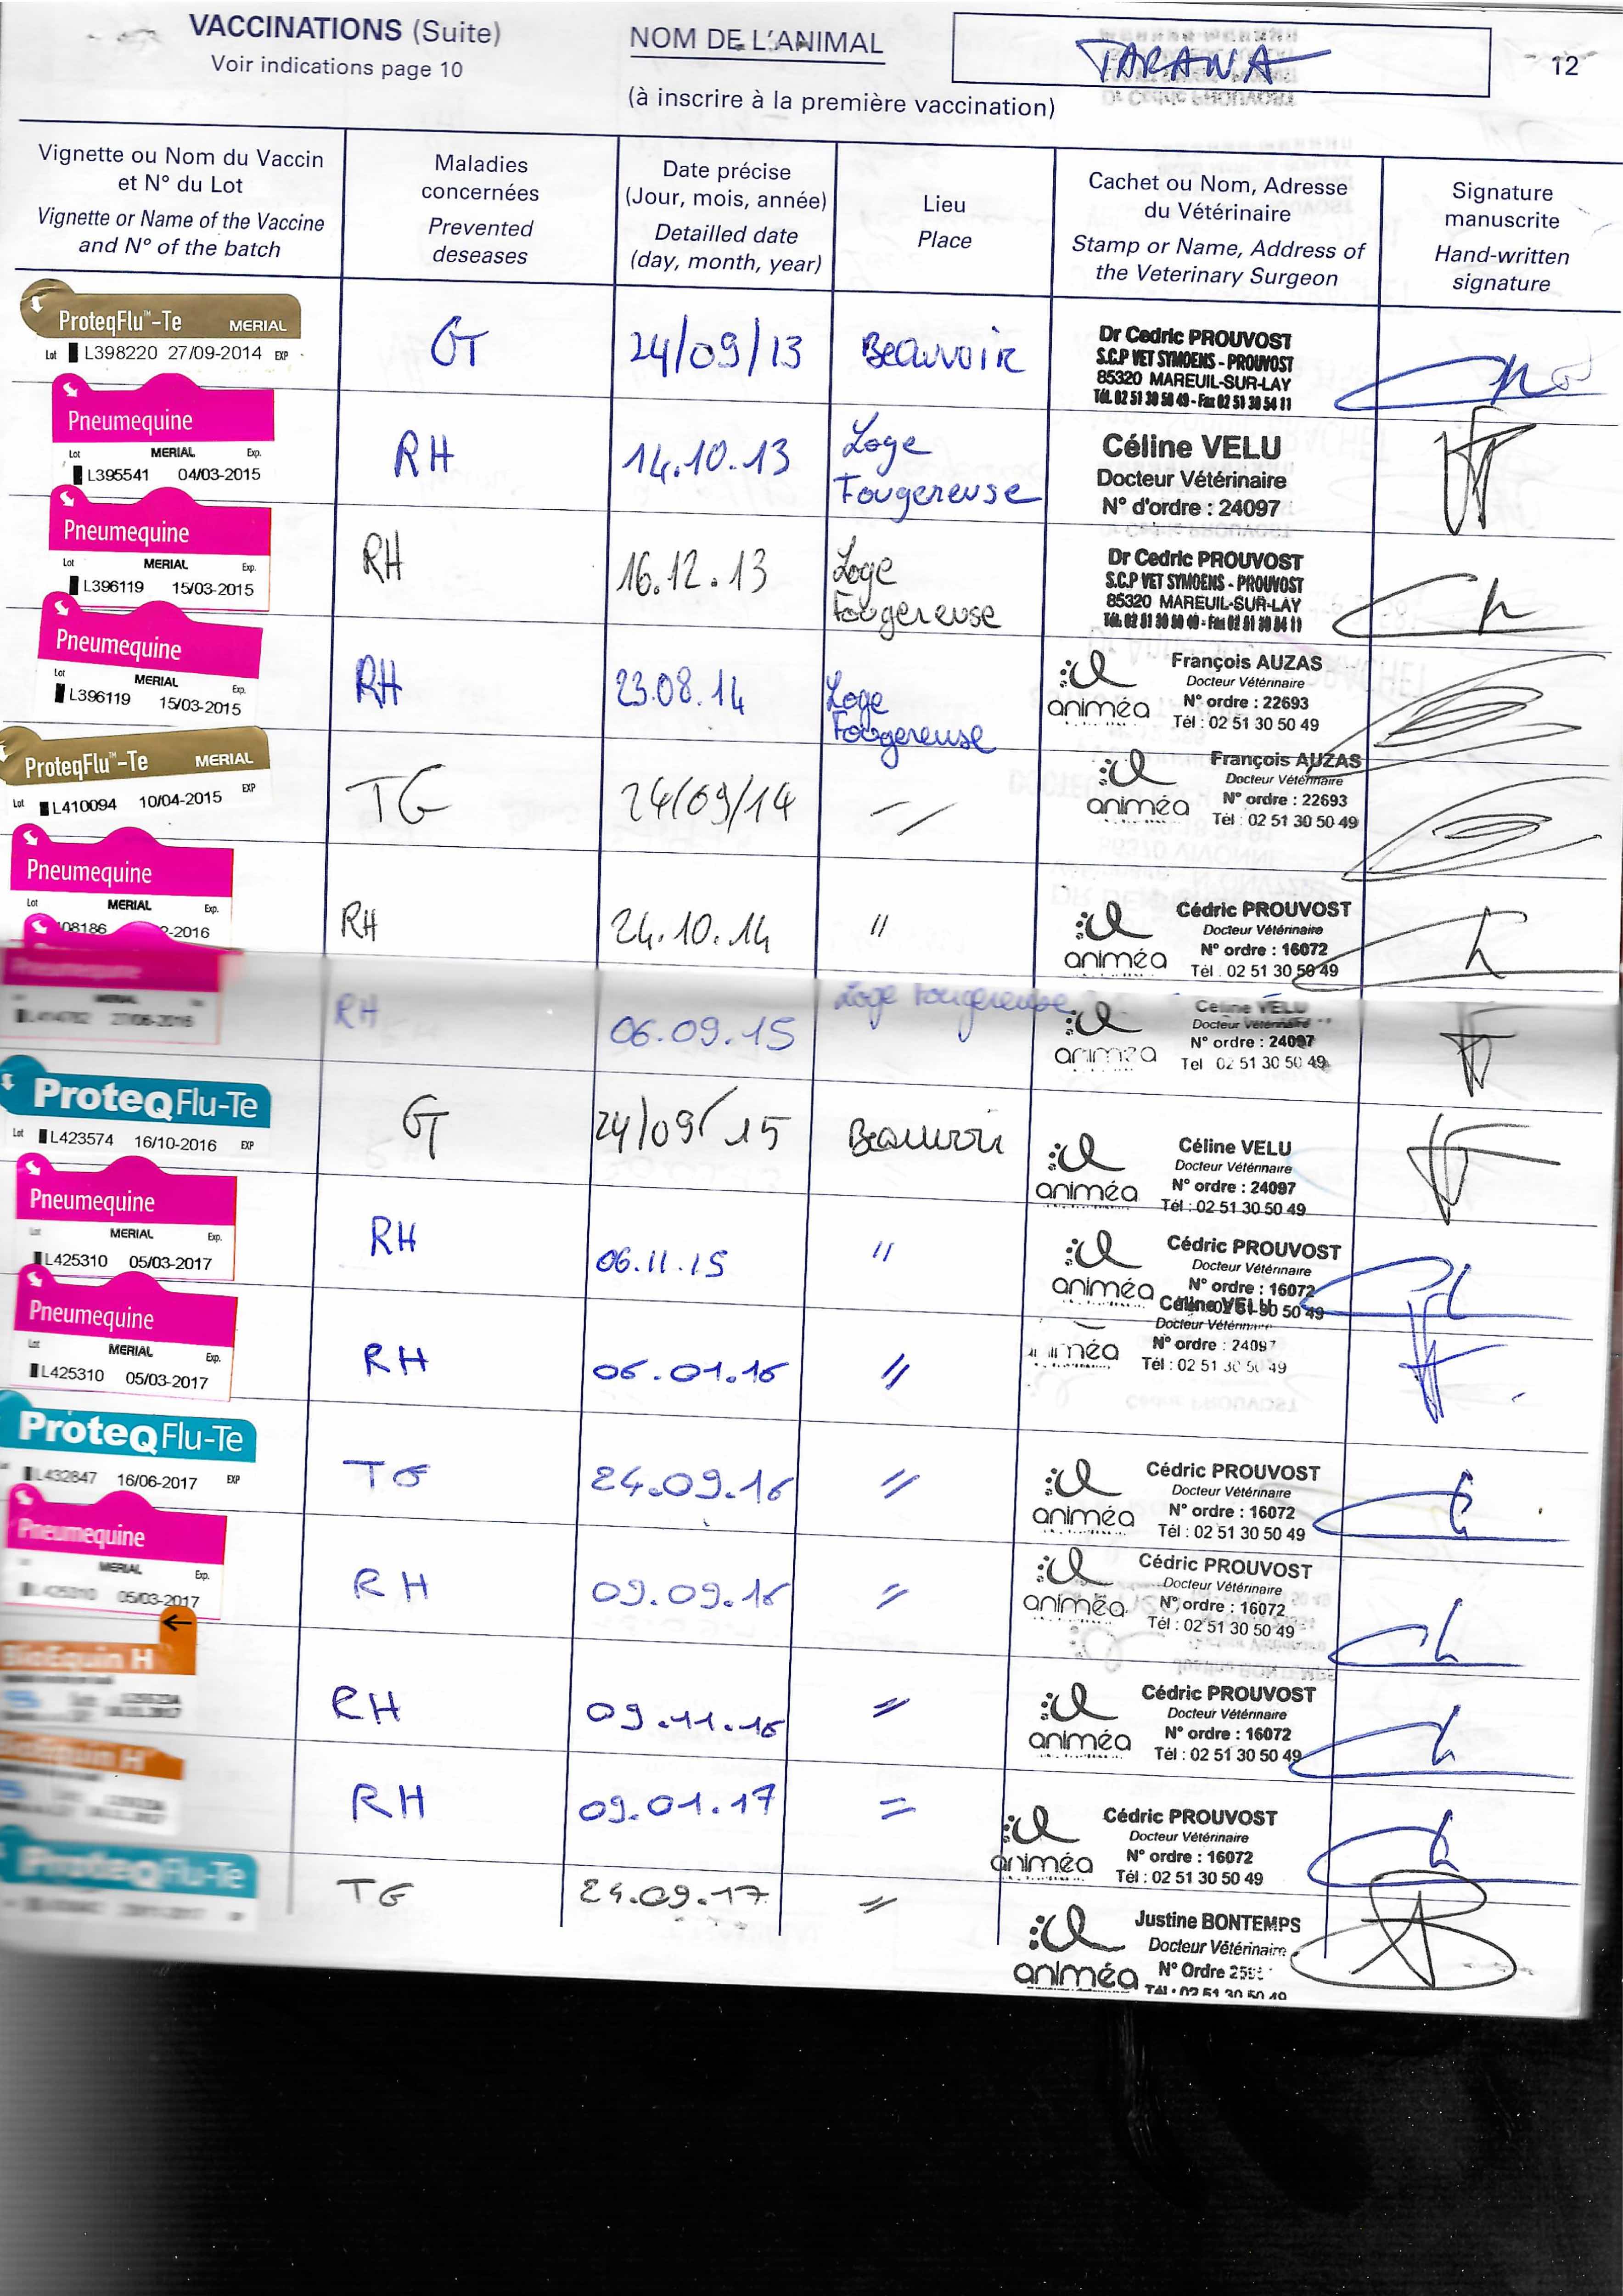 VACCINATIONS (Suite)
Voir indications page 10
NOM DE L'ANIMAL
(à inscrire à la première vaccination)
TARANA
12
Vignette ou Nom du Vaccin
et N° du Lot
Vignette or Name of the Vaccine
and N° of the batch
Maladies
concernées
Prevented
deseases
Date précise
(Jour, mois, année)
Detailled date
(day, month, year)
Lieu
Place
Cachet ou Nom, Adresse
du Vétérinaire
Stamp or Name, Address of
the Veterinary Surgeon
Signature
manuscrite
Hand-written
signature
ProteqFlu™-Te MERIAL
Lot L398220 27/09-2014 EXP
GT
24/09/13
Beauvoir
Dr Cedric PROUVOST
S.C.P VET SYMOENS - PROUVOST
85320 MAREUIL-SUR-LAY
Tél. 02 51 30 50 49 - Fax 02 51 30 54 11
Pneumequine
Lot MERIAL Exp.
L395541 04/03-2015
RH
14.10.13
Loge
Fougereuse
Céline VELU
Docteur Vétérinaire
N° d'ordre : 24097
Pneumequine
Lot MERIAL Exp.
L396119 15/03-2015
RH
16.12.13
Loge
Fougereuse
Dr Cedric PROUVOST
S.C.P VET SYMOENS - PROUVOST
85320 MAREUIL-SUR-LAY
Tél. 02 51 30 50 49 - Fax 02 51 30 54 11
Pneumequine
Lot MERIAL Exp.
L396119 15/03-2015
RH
23.08.14
Loge
Fougereuse
animéa
François AUZAS
Docteur Vétérinaire
N° ordre : 22693
Tél : 02 51 30 50 49
ProteqFlu™-Te MERIAL
Lot L410094 10/04-2015 EXP
TG
24/09/14
//
animéa
François AUZAS
Docteur Vétérinaire
N° ordre : 22693
Tél : 02 51 30 50 49
Pneumequine
Lot MERIAL Exp.
08186 2-2016
RH
24.10.14
//
animéa
Cédric PROUVOST
Docteur Vétérinaire
N° ordre : 16072
Tél : 02 51 30 50 49
Pneumequine
MERIAL
RH
06.09.15
Loge Fougereuse
Céline VELU
Docteur Vétérinaire
N° ordre : 24097
Tel 02 51 30 50 49
ProteqFlu-Te
Lot L423574 16/10-2016 EXP
GT
24/09/15
Beauvoir
animéa
Céline VELU
Docteur Vétérinaire
N° ordre : 24097
Tél : 02 51 30 50 49
Pneumequine
Lot MERIAL Exp.
L425310 05/03-2017
RH
06.11.15
//
animéa
Cédric PROUVOST
Docteur Vétérinaire
N° ordre : 16072
Pneumequine
Lot MERIAL Exp.
L425310 05/03-2017
RH
06.01.16
//
Céline VELU
Docteur Vétérinaire
N° ordre : 24097
Tél : 02 51 30 50 49
ProteqFlu-Te
L432847 16/06-2017 EXP
TG
24.09.16
//
animéa
Cédric PROUVOST
Docteur Vétérinaire
N° ordre : 16072
Tél : 02 51 30 50 49
Pneumequine
MERIAL Exp.
05/03-2017
RH
09.09.16
//
animéa
Cédric PROUVOST
Docteur Vétérinaire
N° ordre : 16072
Tél : 02 51 30 50 49
BioEquin H
RH
09.11.16
//
animéa
Cédric PROUVOST
Docteur Vétérinaire
N° ordre : 16072
Tél : 02 51 30 50 49
BioEquin H
RH
09.01.17
//
animéa
Cédric PROUVOST
Docteur Vétérinaire
N° ordre : 16072
Tél : 02 51 30 50 49
ProteqFlu-Te
TG
24.09.17
//
animéa
Justine BONTEMPS
Docteur Vétérinaire
N° Ordre
Tél : 02 51 30 50 49